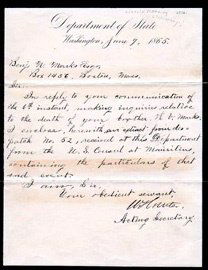 Department of State
Washington, June 9, 1865.
Benj. W. Marks Esqr.
Box 1456, Boston, Mass.
Sir,
In reply to your communication
of the 6th instant, making inquiries relative
to the death of your brother N. W. Marks,
I enclose, herewith, an extract from des-
patch No. 52, received at this Department
from the U.S. Consul at Mauritius,
containing the particulars of that
sad event.
I am, Sir,
Your obedient servant,
W. Hunter
Acting Secretary.